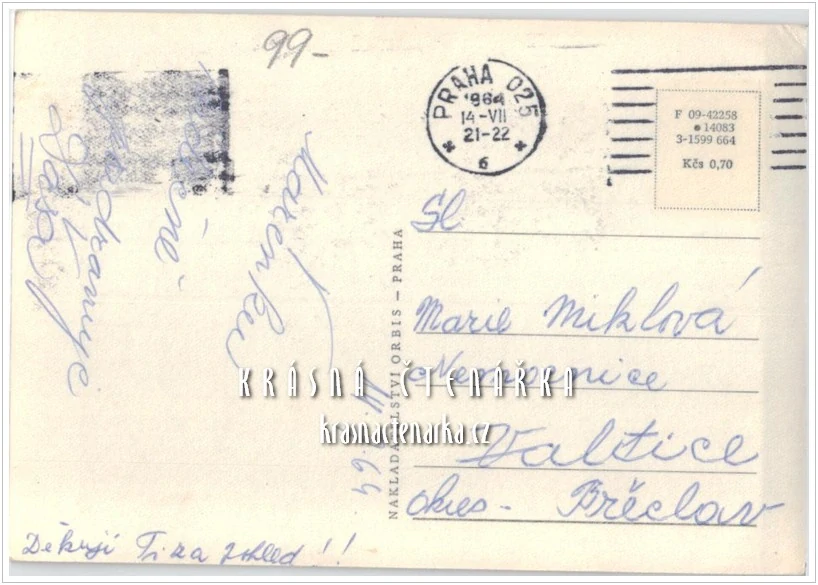 99-
PRAHA 025
1964
14-VII
21-22
6
F 09-42258
14083
3-1599 664
Kčs 0,70
Mařenku
srdečně
pozdravuje
Jára
64
Děkuji Ti za pohled!!
NAKLADATELSTVÍ ORBIS — PRAHA
Sl
Marie Miklová
Nemocnice
Valtice
okres - Břeclav
KRÁSNÁ ČTENÁŘKA
krasnactenarka.cz